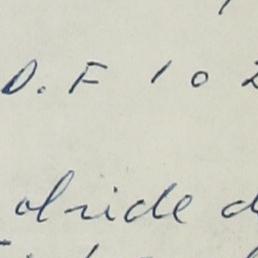 D.F 102
olride d